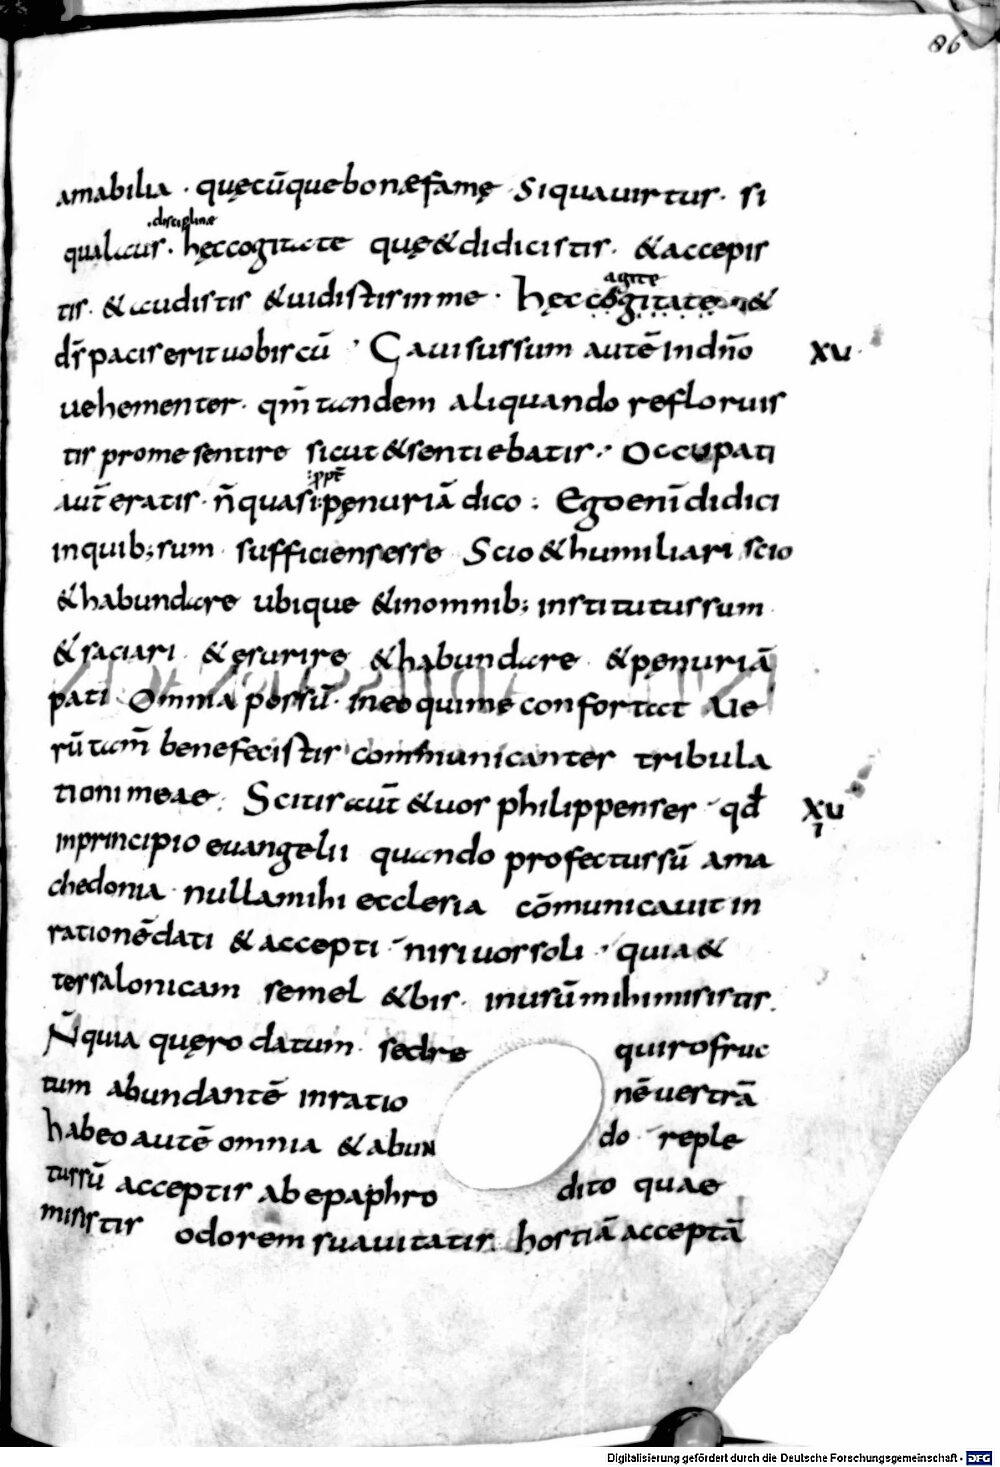 86
amabilia · quęcūque bonae famę · Si qua uirtus · si
· disciplinae
qua laus · hęc cogitate quę & didicistis · & accepis
agite
tis · & audistis & uidistis in me · hęc cogitate · &
ds̄ pacis erit uobis cū · Gauisus sum autē in dn̄o XU
uehementer · qm̄ tandem aliquando refloruis
tis pro me sentire sicut & sentiebatis · Occupati
ꝓpt̄
aut̄ eratis · n̄ quasi penuriā dico : Ego enī didici
in quib; sum sufficiens esse Scio & humiliari scio
& habundare ubique & in omnib; institutus sum ·
& saciari · & ęsurire & habundare & pęnuriā
pati Omnia possū · in eo qui me confortat Ue
rū tam̄ bene fecistis communicantes tribula
tioni meae : Scitis aut̄ & uos philippenses · qd̄ XU
I
in principio euangelii quando profectus sū a ma
chedonia · nulla mihi ecclesia cōmunicauit in
rationē dati & accepti · nisi uos soli · quia &
tessalonicam semel & bis · in usū mihi misistis ·
N̄ quia quęro datum · sed re quiro fruc
tum abundantē in ratio nē uestrā
habeo autē omnia & abun do reple
tus sū acceptis ab epaphro dito quae
misistis odorem suauitatis hostiā acceptā
Digitalisierung gefördert durch die Deutsche Forschungsgemeinschaft - DFG